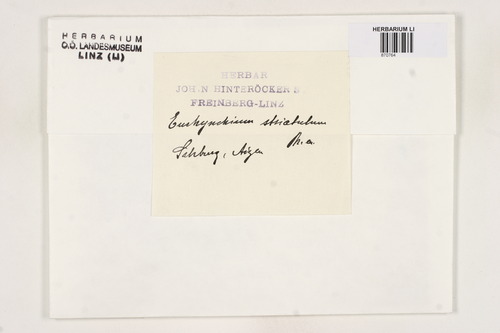 HERBARIUM
O.Ö. LANDESMUSEUM
LINZ (LI)
HERBARIUM LI
HERBAR
JOH. N HINTERÖCKER S
FREINBERG-LINZ
Eurhynchium striatulum
Salzburg, Aigen